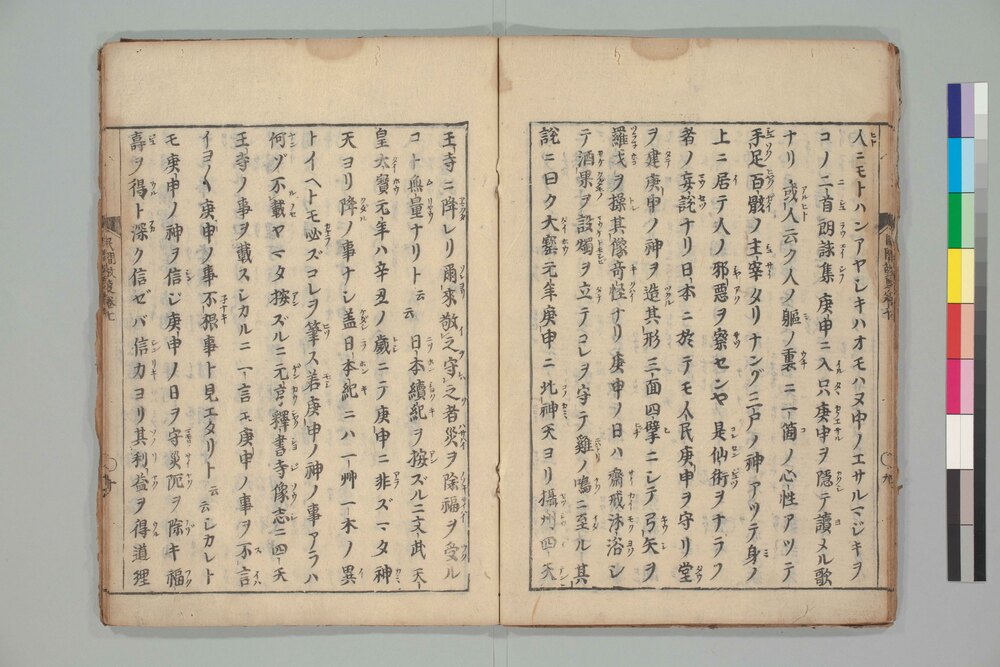 人ニモトハンアヤシキハオモハヌ中ノエサルマジキヲ
コノ二首朗詠集庚申ニ入只庚申ヲ隠テ讀メル歌
ナリ或人云ク人ノ軀ノ裏ニ一箇ノ心性アツテ
手足百骸ノ主宰タリナンゾ三尸ノ神アツテ身ノ
上ニ居テ人ノ邪悪ヲ察センヤ是仙術ヲナラフ
者ノ妄說ナリ日本ニ於テモ人民庚申ヲ守リ堂
ヲ建庚申ノ神ヲ造其形三面四臂ニシテ弓矢ヲ
羅戈ヲ操其像奇怪ナリ庚申ノ日ハ齋戒沐浴シ
テ酒果ヲ設燭ヲ立テコレヲ守テ雞ノ鳴ニ至ル其
說ニ曰ク大寶元年庚申ニ此神天ヨリ攝州四天
王寺ニ降レリ爾來敬之守之者災ヲ除福ヲ受ル
コト無量ナリト云云日本續紀ヲ按ズルニ文武天
皇大寶元年ハ辛丑ノ歲ニテ庚申ニ非ズマタ神
天ヨリ降ノ事ナシ蓋日本紀ニハ一艸一木ノ異
トイヘトモ必ズコレヲ筆ス若庚申ノ神ノ事アラハ
何ゾ不載ヤマタ按ズルニ元亨釋書寺像志ニ四天
王寺ノ事ヲ載スシカルニ一言モ庚申ノ事ヲ不言
イヨ〱庚申ノ事不根事ト見エタリト云云シカレト
モ庚申ノ神ヲ信ジ庚申ノ日ヲ守災厄ヲ除キ福
壽ヲ得ト深ク信ゼバ信力ヨリ其利益ヲ得道理